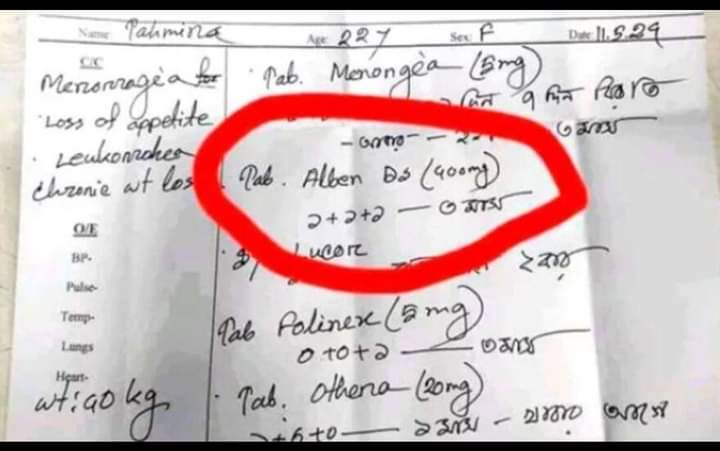 Name: Tahmina Age: 22y Sex: F Date: 11.5.24
C/C
Menorragea
Loss of appetite
Leukorrohea
Chronic wt los
O/E
BP-
Pulse-
Temp-
Lungs
Heart-
wt: 40 kg
Tab. Menongea (5mg)
দিন ৭ দিন বিরতি
৩ মাস
Tab. Alben DS (400mg)
১+১+১ — ৩ মাস
Lucor
Tab Folinex (5mg)
০+০+১ — ৩ মাস
Tab. Othera (20mg)
১+০+০ — ১ মাস - খাবার আগে